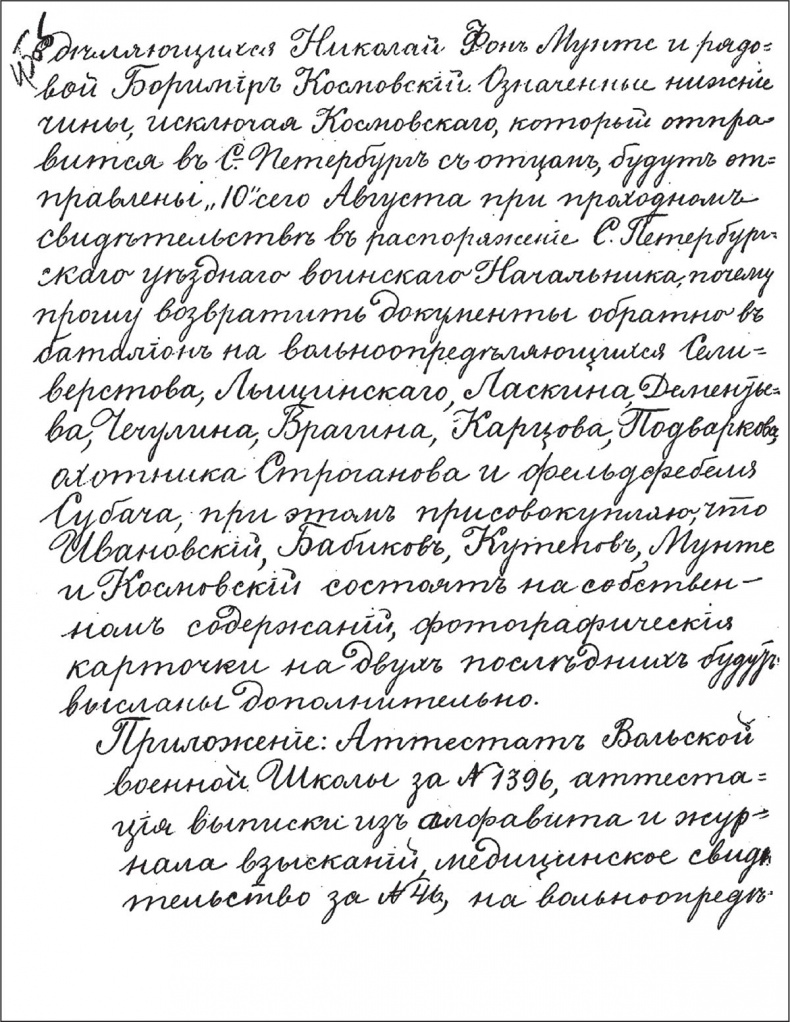 дѣляющихся Николай Фонъ Мунте и рядо=
вой Боримiръ Космовскiй. Означенные нижнiе
чины, исключая Космовскаго, который отпра=
вится въ С.-Петербургъ съ отцомъ, будутъ от=
правлены „10" сего Августа при проходномъ
свидѣтельствѣ въ распоряженiе С. Петербург=
скаго уѣзднаго воинскаго Начальника, почему
прошу возвратить документы обратно въ
баталiонъ на вольноопредѣляющихся Сели=
верстова, Лыщинскаго, Ласкина, Дементье=
ва, Чечулина, Врагина, Карцова, Подваркова,
охотника Строганова и фельдфебеля
Субача, при этомъ присовокупляю, что
Ивановскiй, Бабиковъ, Кутеповъ, Мунте
и Космовскiй состоятъ на собствен-
номъ содержанiи, фотографическiя
карточки на двухъ послѣднихъ будутъ
высланы дополнительно.
Приложенiе: Аттестатъ Вольской
военной Школы за № 1396, аттеста=
цiя выписки изъ алфавита и жур=
нала взысканiй, медицинское свидѣ
тельство за № 46, на вольноопредѣ-